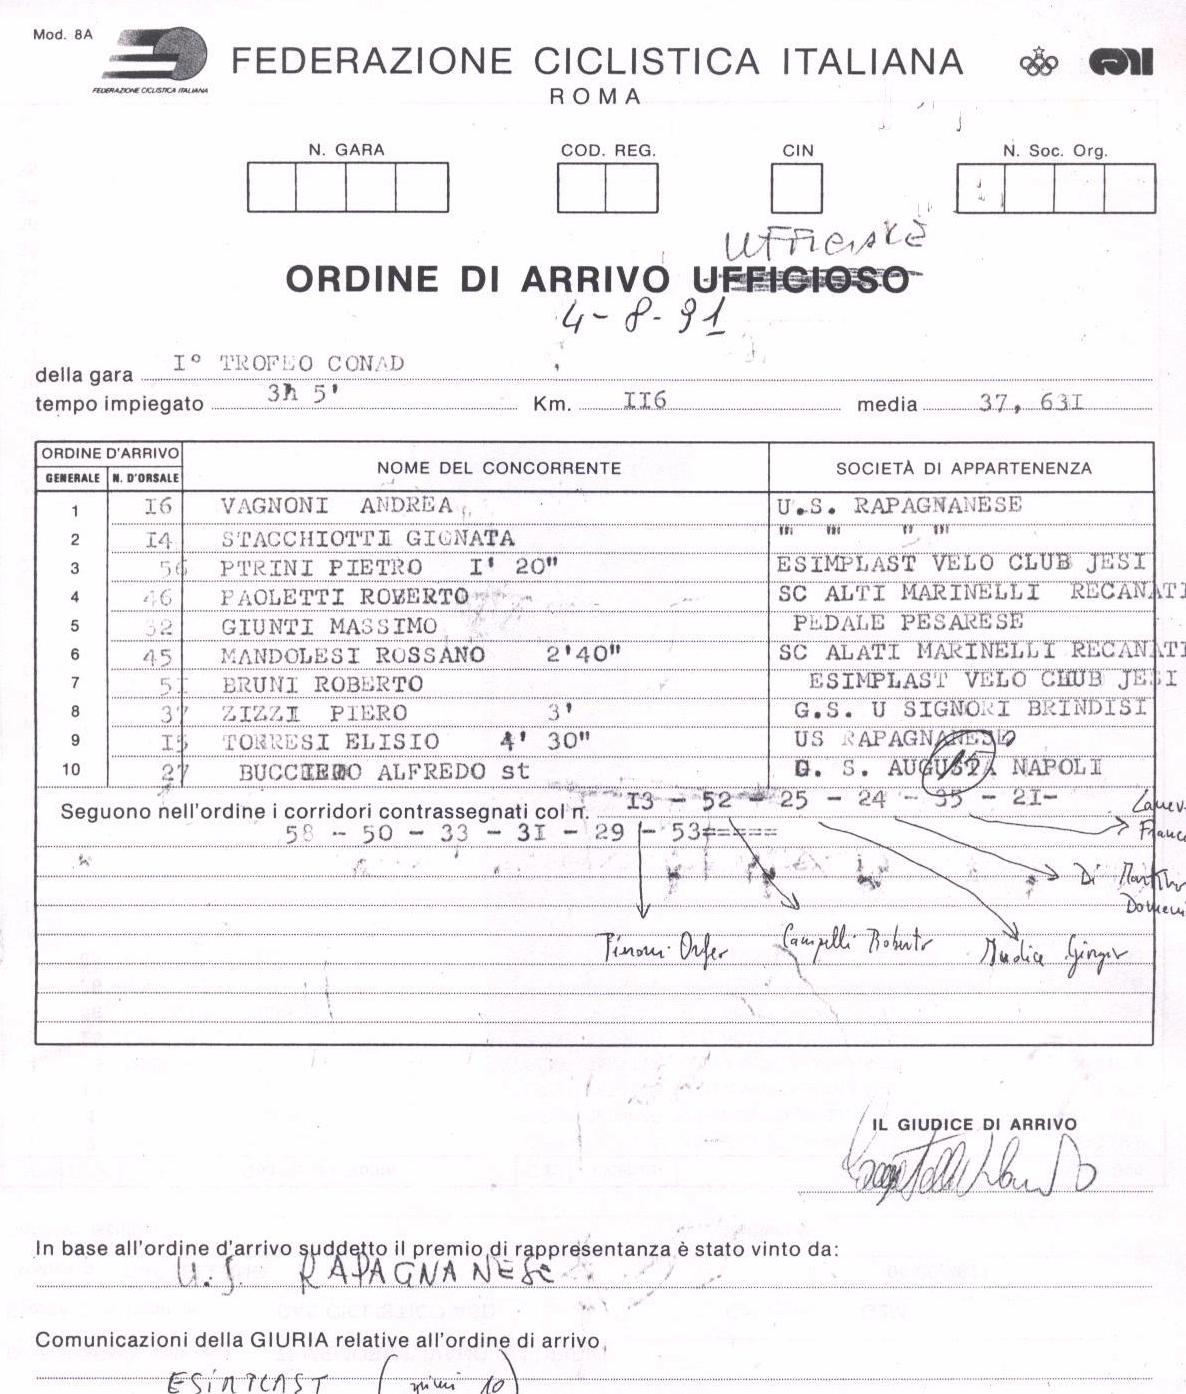 Mod. 8A
FEDERAZIONE CICLISTICA ITALIANA
FEDERAZIONE CICLISTICA ITALIANA
ROMA
N. GARA COD. REG. CIN N. Soc. Org.
UFFiciALE
ORDINE DI ARRIVO UFFICIOSO
4-8-91
della gara I° TROFEO CONAD
tempo impiegato 3h 5' Km. II6 media 37, 63I
ORDINE D'ARRIVO NOME DEL CONCORRENTE SOCIETÀ DI APPARTENENZA
GENERALE N. D'ORSALE
1 I6 VAGNONI ANDREA U.S. RAPAGNANESE
2 I4 STACCHIOTTI GIONATA "" "" "" ""
3 56 PTRINI PIETRO I' 20" ESIMPLAST VELO CLUB JESI
4 46 PAOLETTI ROBERTO SC ALTI MARINELLI RECANATI
5 32 GIUNTI MASSIMO PEDALE PESARESE
6 45 MANDOLESI ROSSANO 2'40" SC ALATI MARINELLI RECANATI
7 5I BRUNI ROBERTO ESIMPLAST VELO CLUB JESI
8 37 ZIZZI PIERO 3' G.S. U SIGNORI BRINDISI
9 I5 TORRESI ELISIO 4' 30" US RAPAGNANESE
10 27 ALFREDO st G. S. AUGUSTA NAPOLI
Seguono nell'ordine i corridori contrassegnati col n. I3 - 52 - 25 - 24 - 35 - 2I-
58 - 50 - 33 - 3I - 29 - 53=====
Di
Campelli Roberto
IL GIUDICE DI ARRIVO
In base all'ordine d'arrivo suddetto il premio di rappresentanza è stato vinto da:
U.S. RAPAGNANESE
Comunicazioni della GIURIA relative all'ordine di arrivo